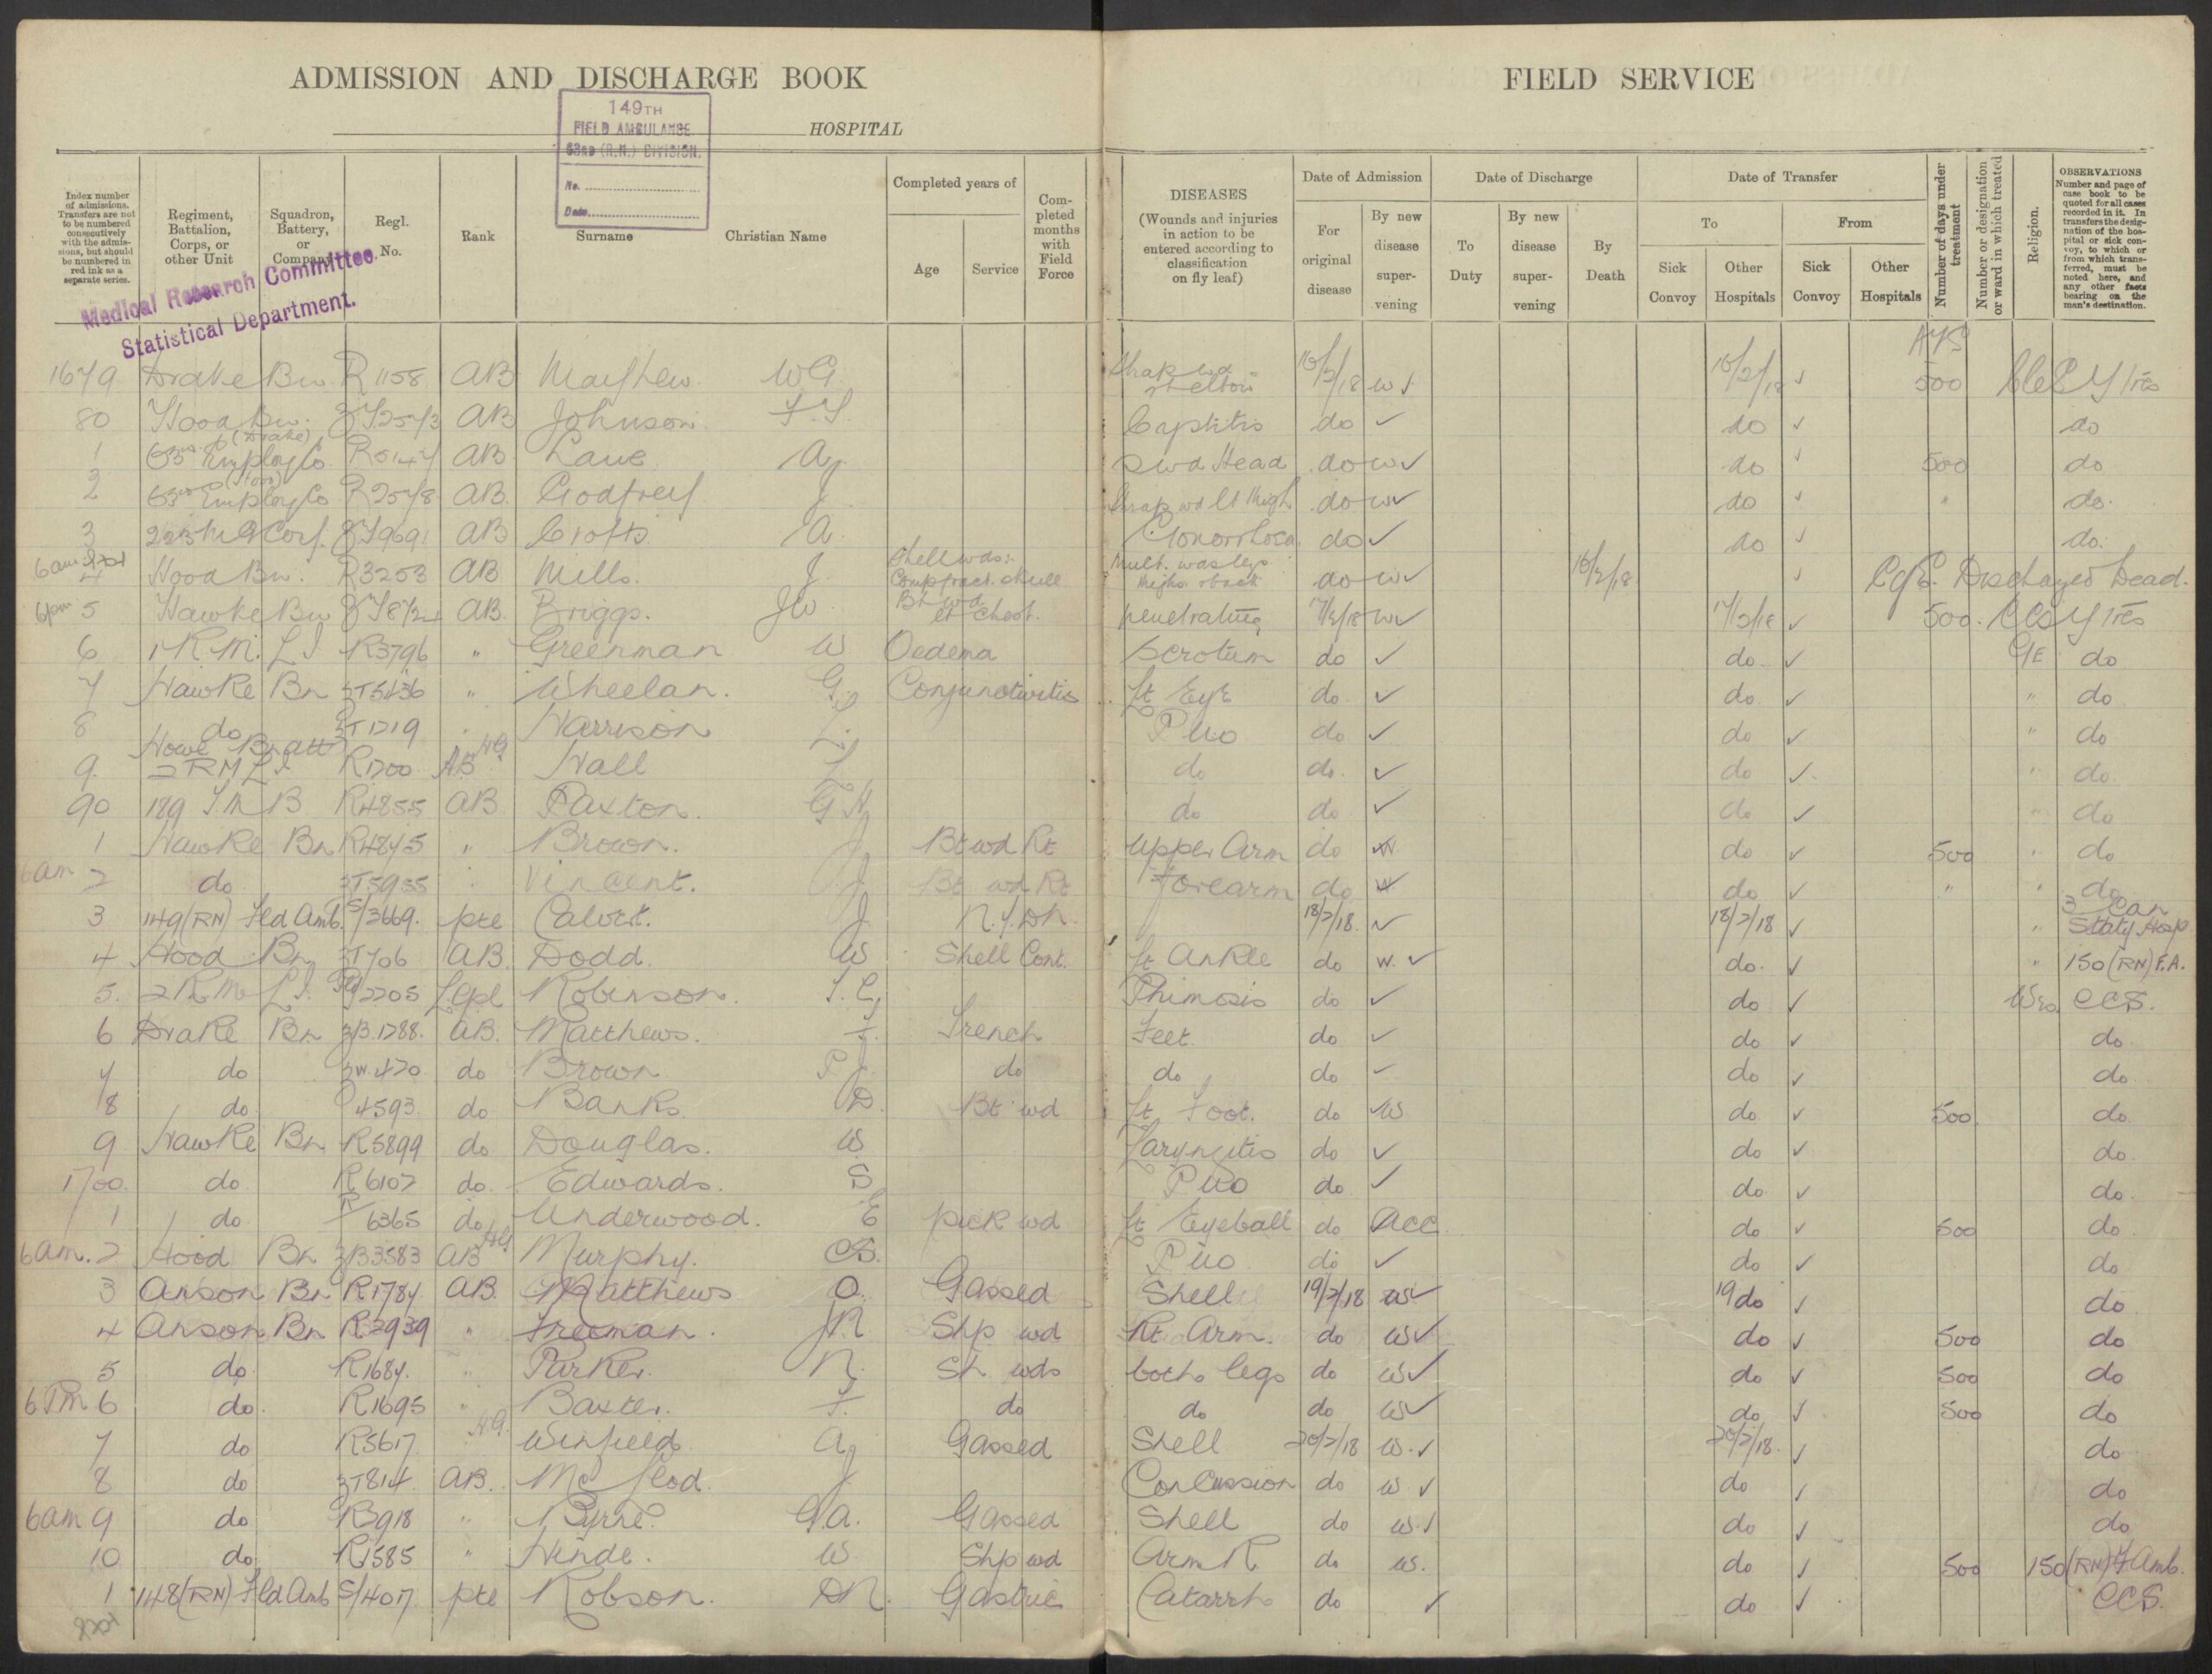 ADMISSION AND DISCHARGE BOOK
FIELD SERVICE
149TH
FIELD AMBULANCE
63RD (R.N.) DIVISION.
No.
Date
HOSPITAL
Index number of admissions. Transfers are not to be numbered consecutively with the admissions, but should be numbered in red ink as a separate series.
Regiment, Battalion, Corps, or other Unit
Squadron, Battery, or Company
Regl. No.
Rank
Surname
Christian Name
Completed years of
Age
Service
Completed months with Field Force
DISEASES
(Wounds and injuries in action to be entered according to classification on fly leaf)
Date of Admission
For original disease
By new disease supervening
Date of Discharge
To Duty
By new disease supervening
By Death
Date of Transfer
To
Sick Convoy
Other Hospitals
From
Sick Convoy
Other Hospitals
Number of days under treatment
Number or designation or ward in which treated
Religion.
OBSERVATIONS
Number and page of case book to be quoted for all cases recorded in it. In transfers the designation of the hospital or sick convoy, to which or from which transferred, must be noted here, and any other facts bearing on the man's destination.
Medical Research Committee
Statistical Department.
1679 Drake Bn R1158 AB Mayhew WG 16/2/18 w ✓ 16/2/18 ✓ 500
80 Hood Bn. AB Johnson do ✓ do ✓ do
1 63rd Employ Co (Drake) AB Lane A. Head do w ✓ do ✓ 500 do
2 63rd Employ Co (Hood) R2578 AB. Godfrey J. Shrap wd Lt thigh do w ✓ do ✓ " do.
3 223 M G Corps AB Crofts A. Gonorrhoea do ✓ do ✓ do.
6am 4 Hood Bn. R3253 AB Mills. J. Shell wds: Comp fract. skull Mult. wds legs thighs & back do w ✓ 16/2/18 ✓ Discharged Dead.
6pm 5 Hawke Bn AB. Briggs. JW Bt wd Lt chest. penetrating 17/2/18 w ✓ 17/2/18 ✓ 500.
6 1 R.M.L.I R3796 " Greenman W Oedema Scrotum do ✓ do ✓ do
7 Hawke Bn " Wheelan. G. Conjunctivitis Lt Eye do ✓ do ✓ " do
8 do Harrison L. P U O do ✓ do ✓ " do
9. Howe Bn att 2 R M L I R1200 AB Hall L. do do. ✓ do ✓ " do.
90 189 T.M B R4855 AB. Paxton. G H. do do ✓ do ✓ " do
1 Hawke Bn R4845 " Brown. J. Bt wd Rt Upper Arm do w do ✓ 500 " do
6am 2 do Vincent. J. Bt wd Rt Forearm do w do ✓ " " do
3 149 (RN) Fld Amb. S/3669. pte Calvert. J. N.Y.D.N. 18/2/18. ✓ 18/2/18 ✓ " 3 Can Staty Hosp
4 Hood Bn AB. Dodd. W Shell Cont. Lt Ankle do w. ✓ do. ✓ " 150 (RN) F.A.
5. 2 R M L I. L.Cpl Robinson. Phimosis do ✓ do ✓ Wes CCS.
6 Drake Bn AB. Matthews. F. Trench Feet. do ✓ do ✓ do
7 do do Brown P J. do do do ✓ do ✓ do
8 do 4593 do Banks. D. Bt wd Lt Foot. do ✓ w do ✓ 500 do
9 Hawke Bn R5899 do Douglas. W. Laryngitis do ✓ do ✓ do.
1700. do R6107 do. Edwards. S P U O do ✓ do ✓ do.
1 do R/6365 do Underwood. E pick wd Lt Eyeball do Acc do ✓ 500 do
6am. 2 Hood Bn AB Murphy. P U O do ✓ do ✓ do
3 Anson Bn R1784. AB. Matthews O. Gassed Shell 19/2/18 w ✓ 19 do ✓ do
4 Anson Bn R2939 " Freeman. J R Shp wd Rt Arm. do w ✓ do ✓ 500 do
5 do. R1684. " Parker. N. Sh wds both legs do w ✓ do ✓ 500 do
6 PM 6 do. R1695 " Baxter. F. do do do w ✓ do ✓ 500 do
7 do R5617 Winfield A. Gassed Shell 20/2/18 w. ✓ 20/2/18. ✓ do
8 do AB. McLeod. J Concussion do w ✓ do ✓ do
6am 9 do " Byrne. G.A. Gassed Shell do w. ✓ do ✓ do
10 do R1585 " Hinde. W. Shp wd Arm R do w. do ✓ 500 150 (RN) F Amb.
1 148 (RN) Fld Amb S/4017 pte Robson. Gastric Catarrh do ✓ do ✓ CCS.